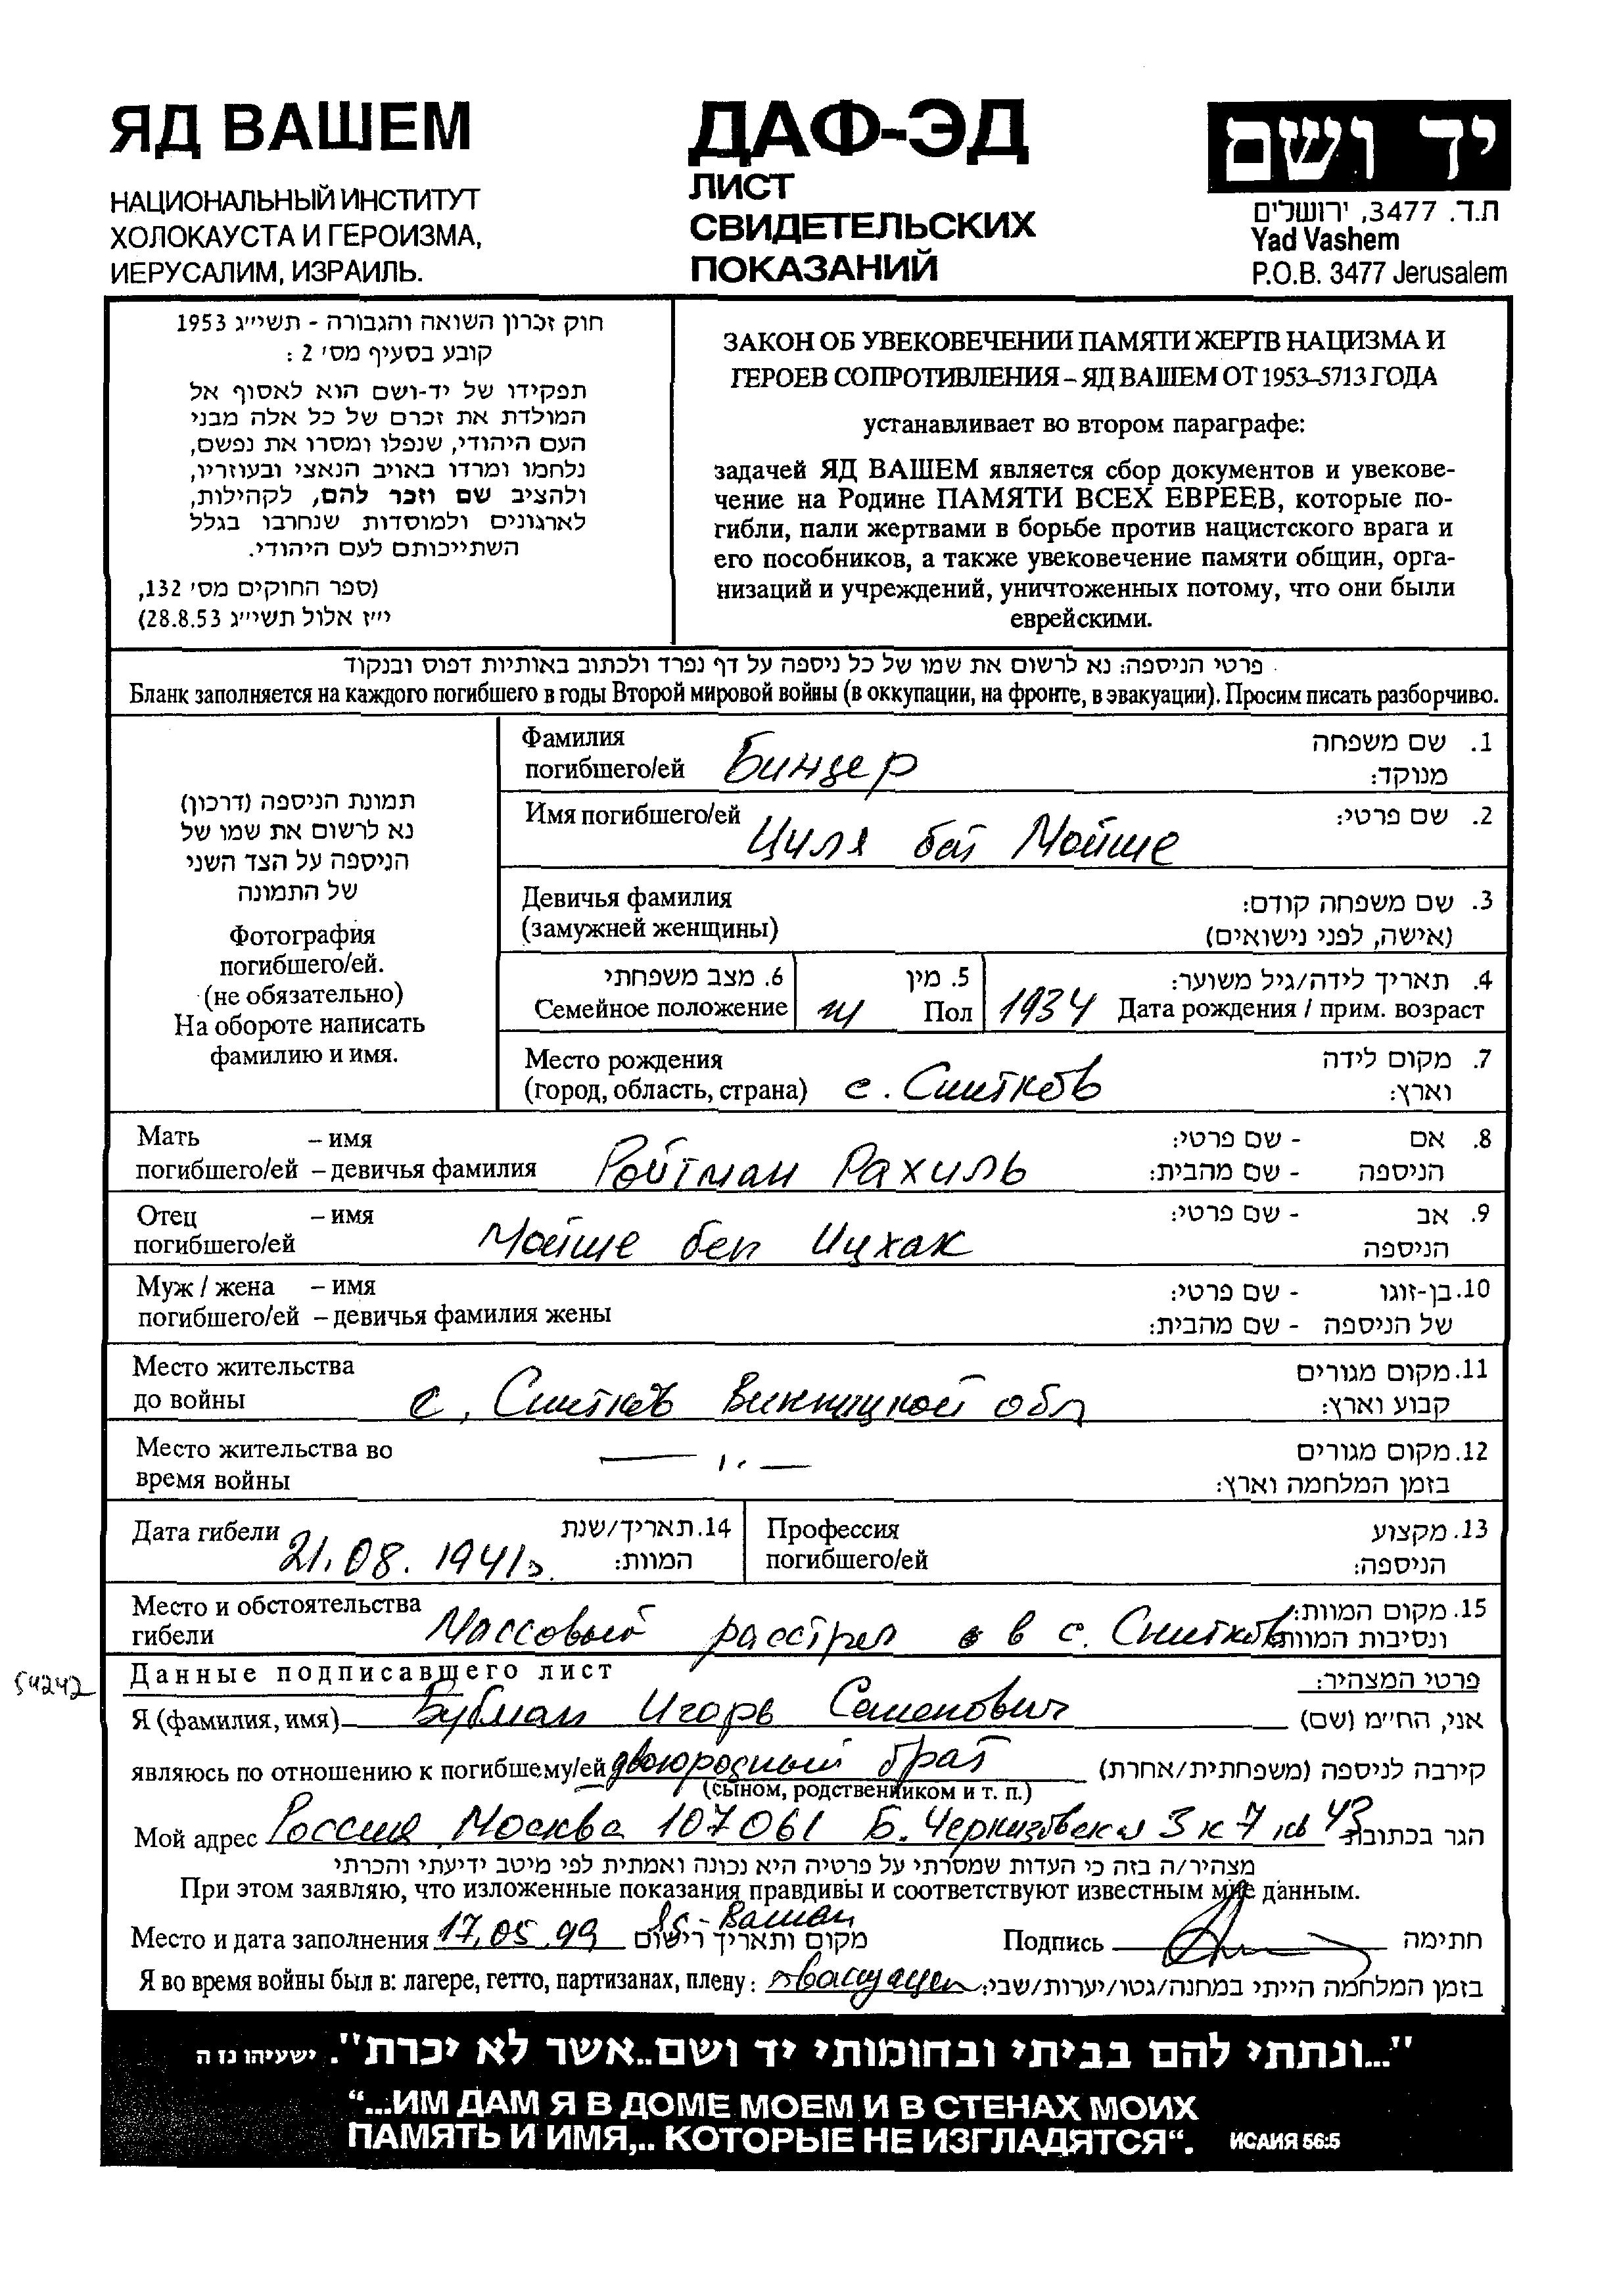 ЯД ВАШЕМ
НАЦИОНАЛЬНЫЙ ИНСТИТУТ
ХОЛОКАУСТА И ГЕРОИЗМА,
ИЕРУСАЛИМ, ИЗРАИЛЬ.
ДАФ-ЭД
ЛИСТ
СВИДЕТЕЛЬСКИХ
ПОКАЗАНИЙ
יד ושם
ת.ד. 3477, ירושלים
Yad Vashem
P.O.B. 3477 Jerusalem
חוק זכרון השואה והגבורה - תשי״ג 1953
קובע בסעיף מס׳ 2 :
תפקידו של יד-ושם הוא לאסוף אל
המולדת את זכרם של כל אלה מבני
העם היהודי, שנפלו ומסרו את נפשם,
נלחמו ומרדו באויב הנאצי ובעוזריו,
ולהציב שם וזכר להם, לקהילות,
לארגונים ולמוסדות שנחרבו בגלל
השתייכותם לעם היהודי.
(ספר החוקים מס׳ 132,
י״ז אלול תשי״ג 28.8.53)
ЗАКОН ОБ УВЕКОВЕЧЕНИИ ПАМЯТИ ЖЕРТВ НАЦИЗМА И
ГЕРОЕВ СОПРОТИВЛЕНИЯ – ЯД ВАШЕМ ОТ 1953–5713 ГОДА
устанавливает во втором параграфе:
задачей ЯД ВАШЕМ является сбор документов и увекове-
чение на Родине ПАМЯТИ ВСЕХ ЕВРЕЕВ, которые по-
гибли, пали жертвами в борьбе против нацистского врага и
его пособников, а также увековечение памяти общин, орга-
низаций и учреждений, уничтоженных потому, что они были
еврейскими.
פרטי הניספה: נא לרשום את שמו של כל ניספה על דף נפרד ולכתוב באותיות דפוס ובנקוד
Бланк заполняется на каждого погибшего в годы Второй мировой войны (в оккупации, на фронте, в эвакуации). Просим писать разборчиво.
תמונת הניספה (דרכון)
נא לרשום את שמו של
הניספה על הצד השני
של התמונה
Фотография
погибшего/ей.
(не обязательно)
На обороте написать
фамилию и имя.
Фамилия 1. שם משפחה
погибшего/ей Биндер מנוקד:
Имя погибшего/ей 2. שם פרטי:
Циля бат Мойше
Девичья фамилия 3. שם משפחה קודם:
(замужней женщины) (אישה, לפני נישואים)
6. מצב משפחתי 5. מין 4. תאריך לידה/גיל משוער:
Семейное положение ж Пол 1934 Дата рождения / прим. возраст
Место рождения 7. מקום לידה
(город, область, страна) с. Снитков וארץ:
Мать – имя 8. אם - שם פרטי:
погибшего/ей – девичья фамилия Ройтман Рахиль הניספה - שם מהבית:
Отец – имя 9. אב - שם פרטי:
погибшего/ей Мойше бен Ицхак הניספה
Муж / жена – имя 10. בן-זוגו - שם פרטי:
погибшего/ей – девичья фамилия жены של הניספה - שם מהבית:
Место жительства 11. מקום מגורים
до войны с. Снитков Винницкой обл קבוע וארץ:
Место жительства во — ,, — 12. מקום מגורים
время войны בזמן המלחמה וארץ:
Дата гибели 14. תאריך/שנת Профессия 13. מקצוע
21.08.1941г. המוות: погибшего/ей הניספה:
Место и обстоятельства 15. מקום המוות:
гибели Массовый расстрел в с. Снитков ונסיבות המוות:
54242
Данные подписавшего лист פרטי המצהיר:
Я (фамилия, имя) Бубман Игорь Семенович אני, הח״מ (שם)
являюсь по отношению к погибшему/ей двоюродный брат קירבה לניספה (משפחתית/אחרת)
(сыном, родственником и т. п.)
Мой адрес Россия Москва 107061 Б. Черкизовская 3 к 7 кв 43 הגר בכתובת
מצהיר/ה בזה כי העדות שמסרתי על פרטיה היא נכונה ואמתית לפי מיטב ידיעתי והכרתי
При этом заявляю, что изложенные показания правдивы и соответствуют известным мне данным.
Место и дата заполнения 17.05.99 מקום ותאריך רישום Подпись חתימה
Я во время войны был в: лагере, гетто, партизанах, плену: בזמן המלחמה הייתי במחנה/גטו/יערות/שבי:
"...ונתתי להם בביתי ובחומותי יד ושם..אשר לא יכרת". ישעיהו נז ה
“...ИМ ДАМ Я В ДОМЕ МОЕМ И В СТЕНАХ МОИХ
ПАМЯТЬ И ИМЯ,.. КОТОРЫЕ НЕ ИЗГЛАДЯТСЯ“. ИСАИЯ 56:5